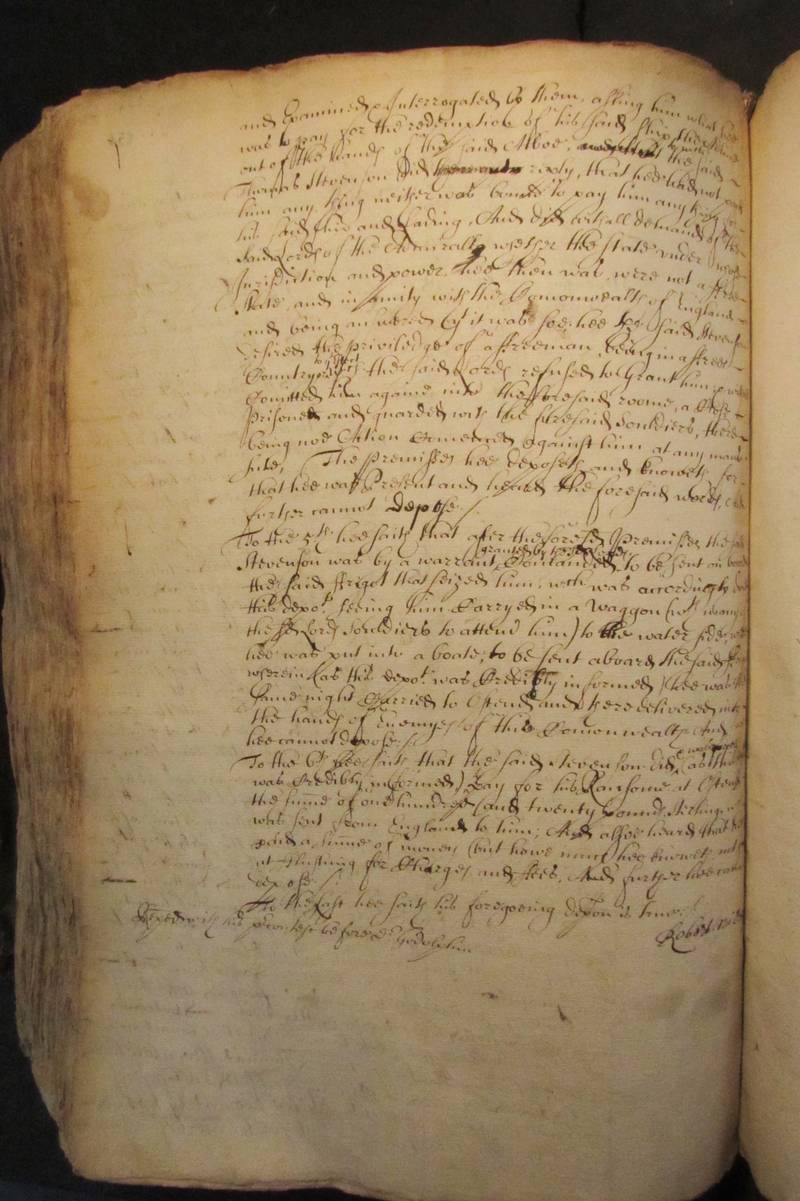 and Examined & Interrogated by them, asking him what hee
was to pay for the redemption of his said shipp
out of the hands of the said Mboe, the said
Thomas Stevenson did reply, that hee had not
him any thing neither was bound to pay him any thing for
his said shipp and lading, And did withall demand of the
said Lords of the Admiralty whether the state under whose
Jurisdiction and power hee then was, were not a ffree
State, and in amity with the Comonwealth of England
and being answered yt it was soe, hee the said Stevenson
desired the Priviledge of a ffreeman, being in a ffree
Countrye, the said Lords refused to grant him
Comitted him againe into the foresaid roome, a Close
Prisoner and guarded with the foresaid Souldiers, there
being noe Action Comenced against him at any mans
suite, The Premisses hee deposeth and knoweth for
that hee was Present and heard the foresaid words, And
further cannot depose./
To the 5th hee saith that after the foresaid Premisses the said
Stevenson was by a warrant granted by the said Comanded to be sent on board
the said ffrigot that seized him, wch was accordingly
this depot. seeing him Carryed in a Waggon (wth
the sd Lords Souldiers to attend him) to the water side,
hee was put into a boate, to be sent aboard the said
wherein (as this depot was Credibly informed) hee was the
same night Carried to Ostend and there delivered into
the hands of Enemyes of this Comonwealth, And
hee cannot depose./
To the 6th hee saith that the said Stevenson did (as this
was Credibly informed) pay for his Ransome at Ostend
the summe of one hundred and twenty pounds sterling
was sent from England to him; And alsoe heard that hee
paid a summe of money (but howe much hee knoweth not
at Flushing for Charges and ffees, And further hee cannot
depose./
To the last hee saith his foregoing depon is true./
his before Godolphin
Robert